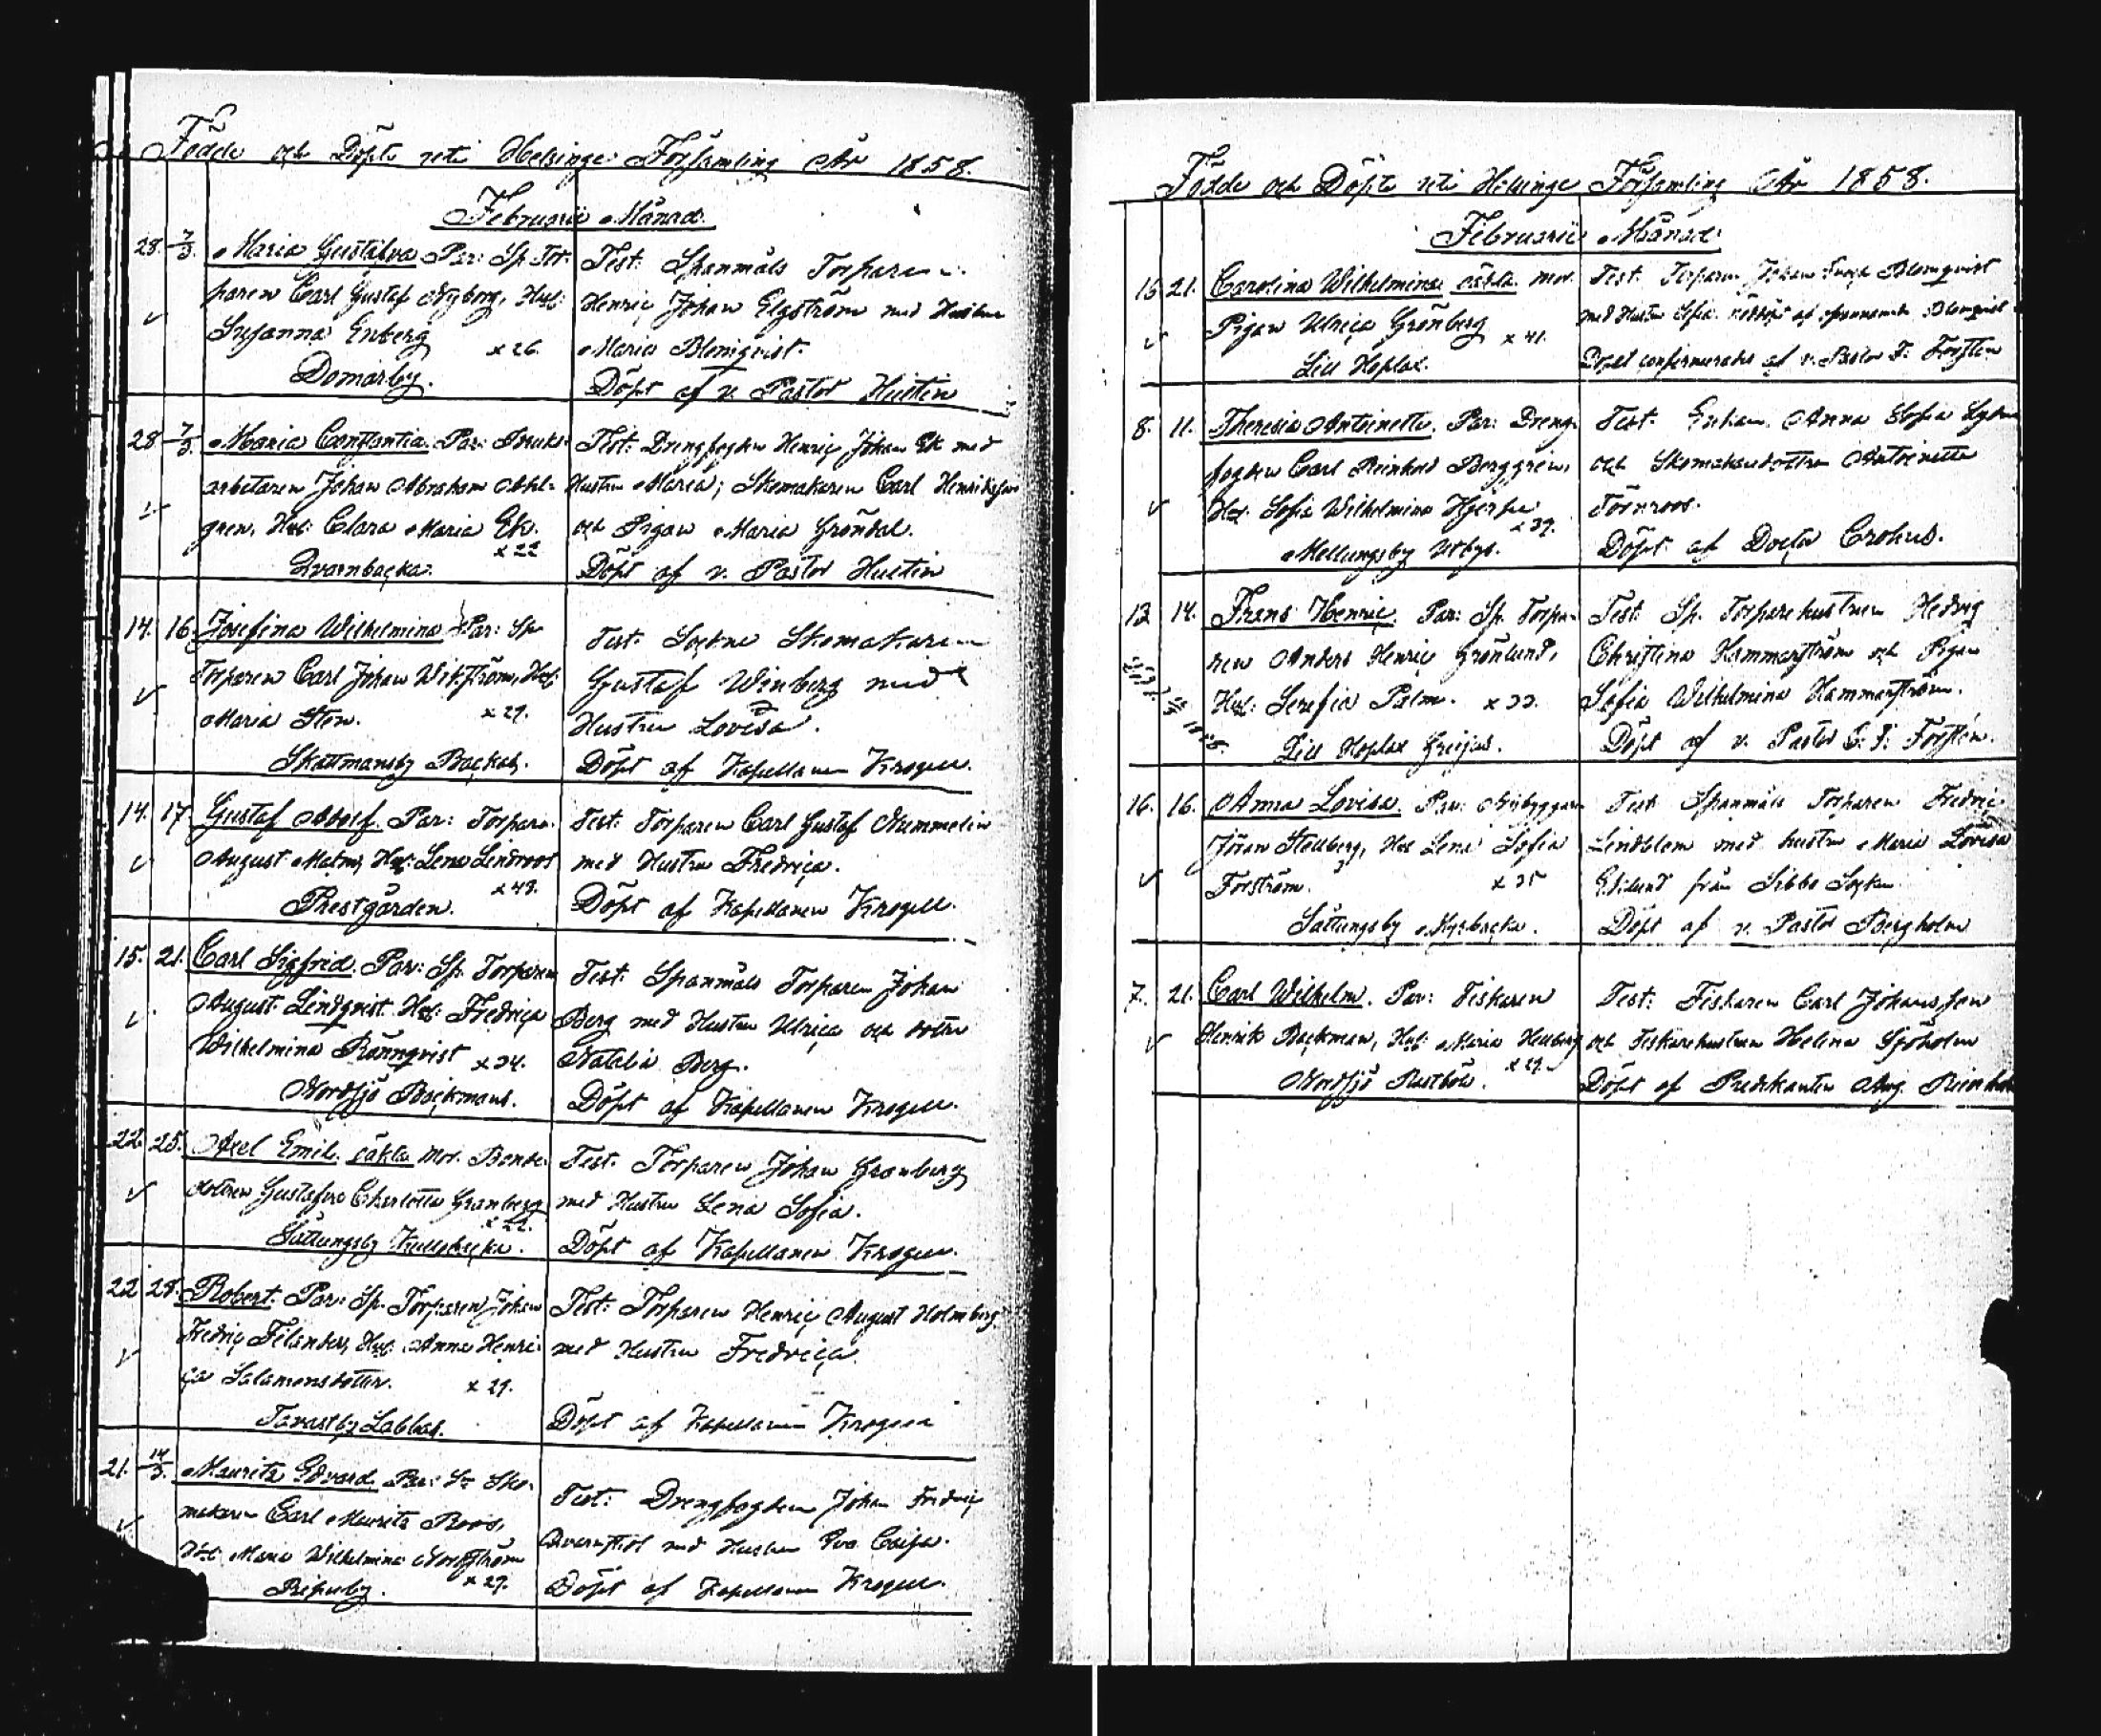 Födde och Döpte uti Helsinge Församling År 1858.
Februarii Månad.
28. 7/3. Maria Gustafva Par: Sp. Tor-
paren Carl Gustaf Nyborg, Hust:
Susanna Enberg x 26.
Domarby.
Test: Spanmåls Torparen
Henric Johan Elgström med Hustru
Maria Blomqvist.
Döpt af v. Pastor Huttin
28 7/3. Maria Constantia. Par: Bruks-
arbetaren Johan Abraham Ahl-
gren, Hust: Clara Maria Ek.
x 22
Qvarnbacka.
Test: Drengfogden Henric Johan Ek med
Hustru Maria; Skomakaren Carl Henriksson
och Pigan Maria Gröndal.
Döpt af v. Pastor Huttin
14. 16. Josefina Wilhelmina Par: Sp
Torparen Carl Johan Wikström, Hust:
Maria Sten. x 29.
Skattmansby Backas.
Test. Sockne Skomakaren
Gustaf Winberg med
Hustru Lovisa.
Döpt af Kapellanen Krogell.
14. 17. Gustaf Adolf. Par: Torparen
August Malm, Hust: Lena Lindroos
x 43.
Prestgården.
Test: Torparen Carl Gustaf Nummelin
med Hustru Fredrica.
Döpt af Kapellanen Krogell.
15. 21. Carl Sigfrid. Par: Sp. Torparen
August Lindqvist Hust: Fredrica
Wilhelmina Rönnqvist x 34.
Nordsjö Backmans.
Test: Spanmåls Torparen Johan
Berg med Hustru Ulrica och dotter
Natalia Berg.
Döpt af Kapellanen Krogell.
22 25. Axel Emil. oäkta Mod. Bonde-
dottren Gustafva Charlotta Granberg
x 22.
Sottungsby Kullabacka.
Test. Torparen Johan Granberg
med Hustru Lena Sofia.
Döpt af Kapellanen Krogell.
22 28. Robert. Par: Sp. Torparen Johan
Fredric Felander, Hust: Anna Henri-
ca Salamonsdotter. x 29.
Tavastby Labbas.
Test: Torparen Henric August Holmberg
med Hustru Fredrica
Döpt af Kapellanen Krogell
21. 14/3. Mauritz Edvard. Par: Sko-
makaren Carl Mauritz Roos,
Hust: Maria Wilhelmina Nordström
x 29.
Ripuby.
Test: Drengfogden Johan Fredric
Qvarnström med Hustru Eva Caisa.
Döpt af Kapellanen Krogell.
Födde och Döpte uti Helsinge Församling År 1858.
Februarii Månad.
15 21. Carolina Wilhelmina oäkta Mod.
Pigan Ulrica Grönberg x 41.
Lill Hoplax.
Test. Torparen Johan Blomqvist
med Hustru Sofia. nöddöpt af Blomqvist
Dopet confirmerades af v. Pastor F. Forstén
8. 11. Theresia Antoinette. Par: Dreng-
fogden Carl Reinhold Berggren,
Hust: Sofia Wilhelmina Hjerpe
x 39.
Mellungsby Utbys.
Test: Enkan Anna Sofia
och Skomakaredottren Antoinette
Törnroos.
Döpt af Doctor Crohns.
13 14. Frans Henric. Par: Sp. Torpa-
ren Anders Henric Grönlund,
Hust: Serefia Palm. x 33.
Lill Hoplax Greijus.
Test: Sp. Torparehustrun Hedvig
Christina Hammarström och Pigan
Sofia Wilhelmina Hammarström.
Döpt af v. Pastor F. Forstén.
16. 16. Anna Lovisa. Par: Nybyggaren
Johan Stellberg, Hust Lena Sofia
Forström. x 35
Sottungsby Nybacka.
Test: Spanmåls Torparen Fredric
Lindblom med hustru Maria Lovisa
från Sibbo Socken
Döpt af v. Pastor Bergholm
7. 21. Carl Wilhelm. Par: Fiskaren
Henrik Backman, Hust: Maria Hellberg
x 29.
Nordsjö Rastböle.
Test: Fiskaren Carl Johansson
och Fiskarehustrun Helena Sjöholm
Döpt af Predikanten Aug.